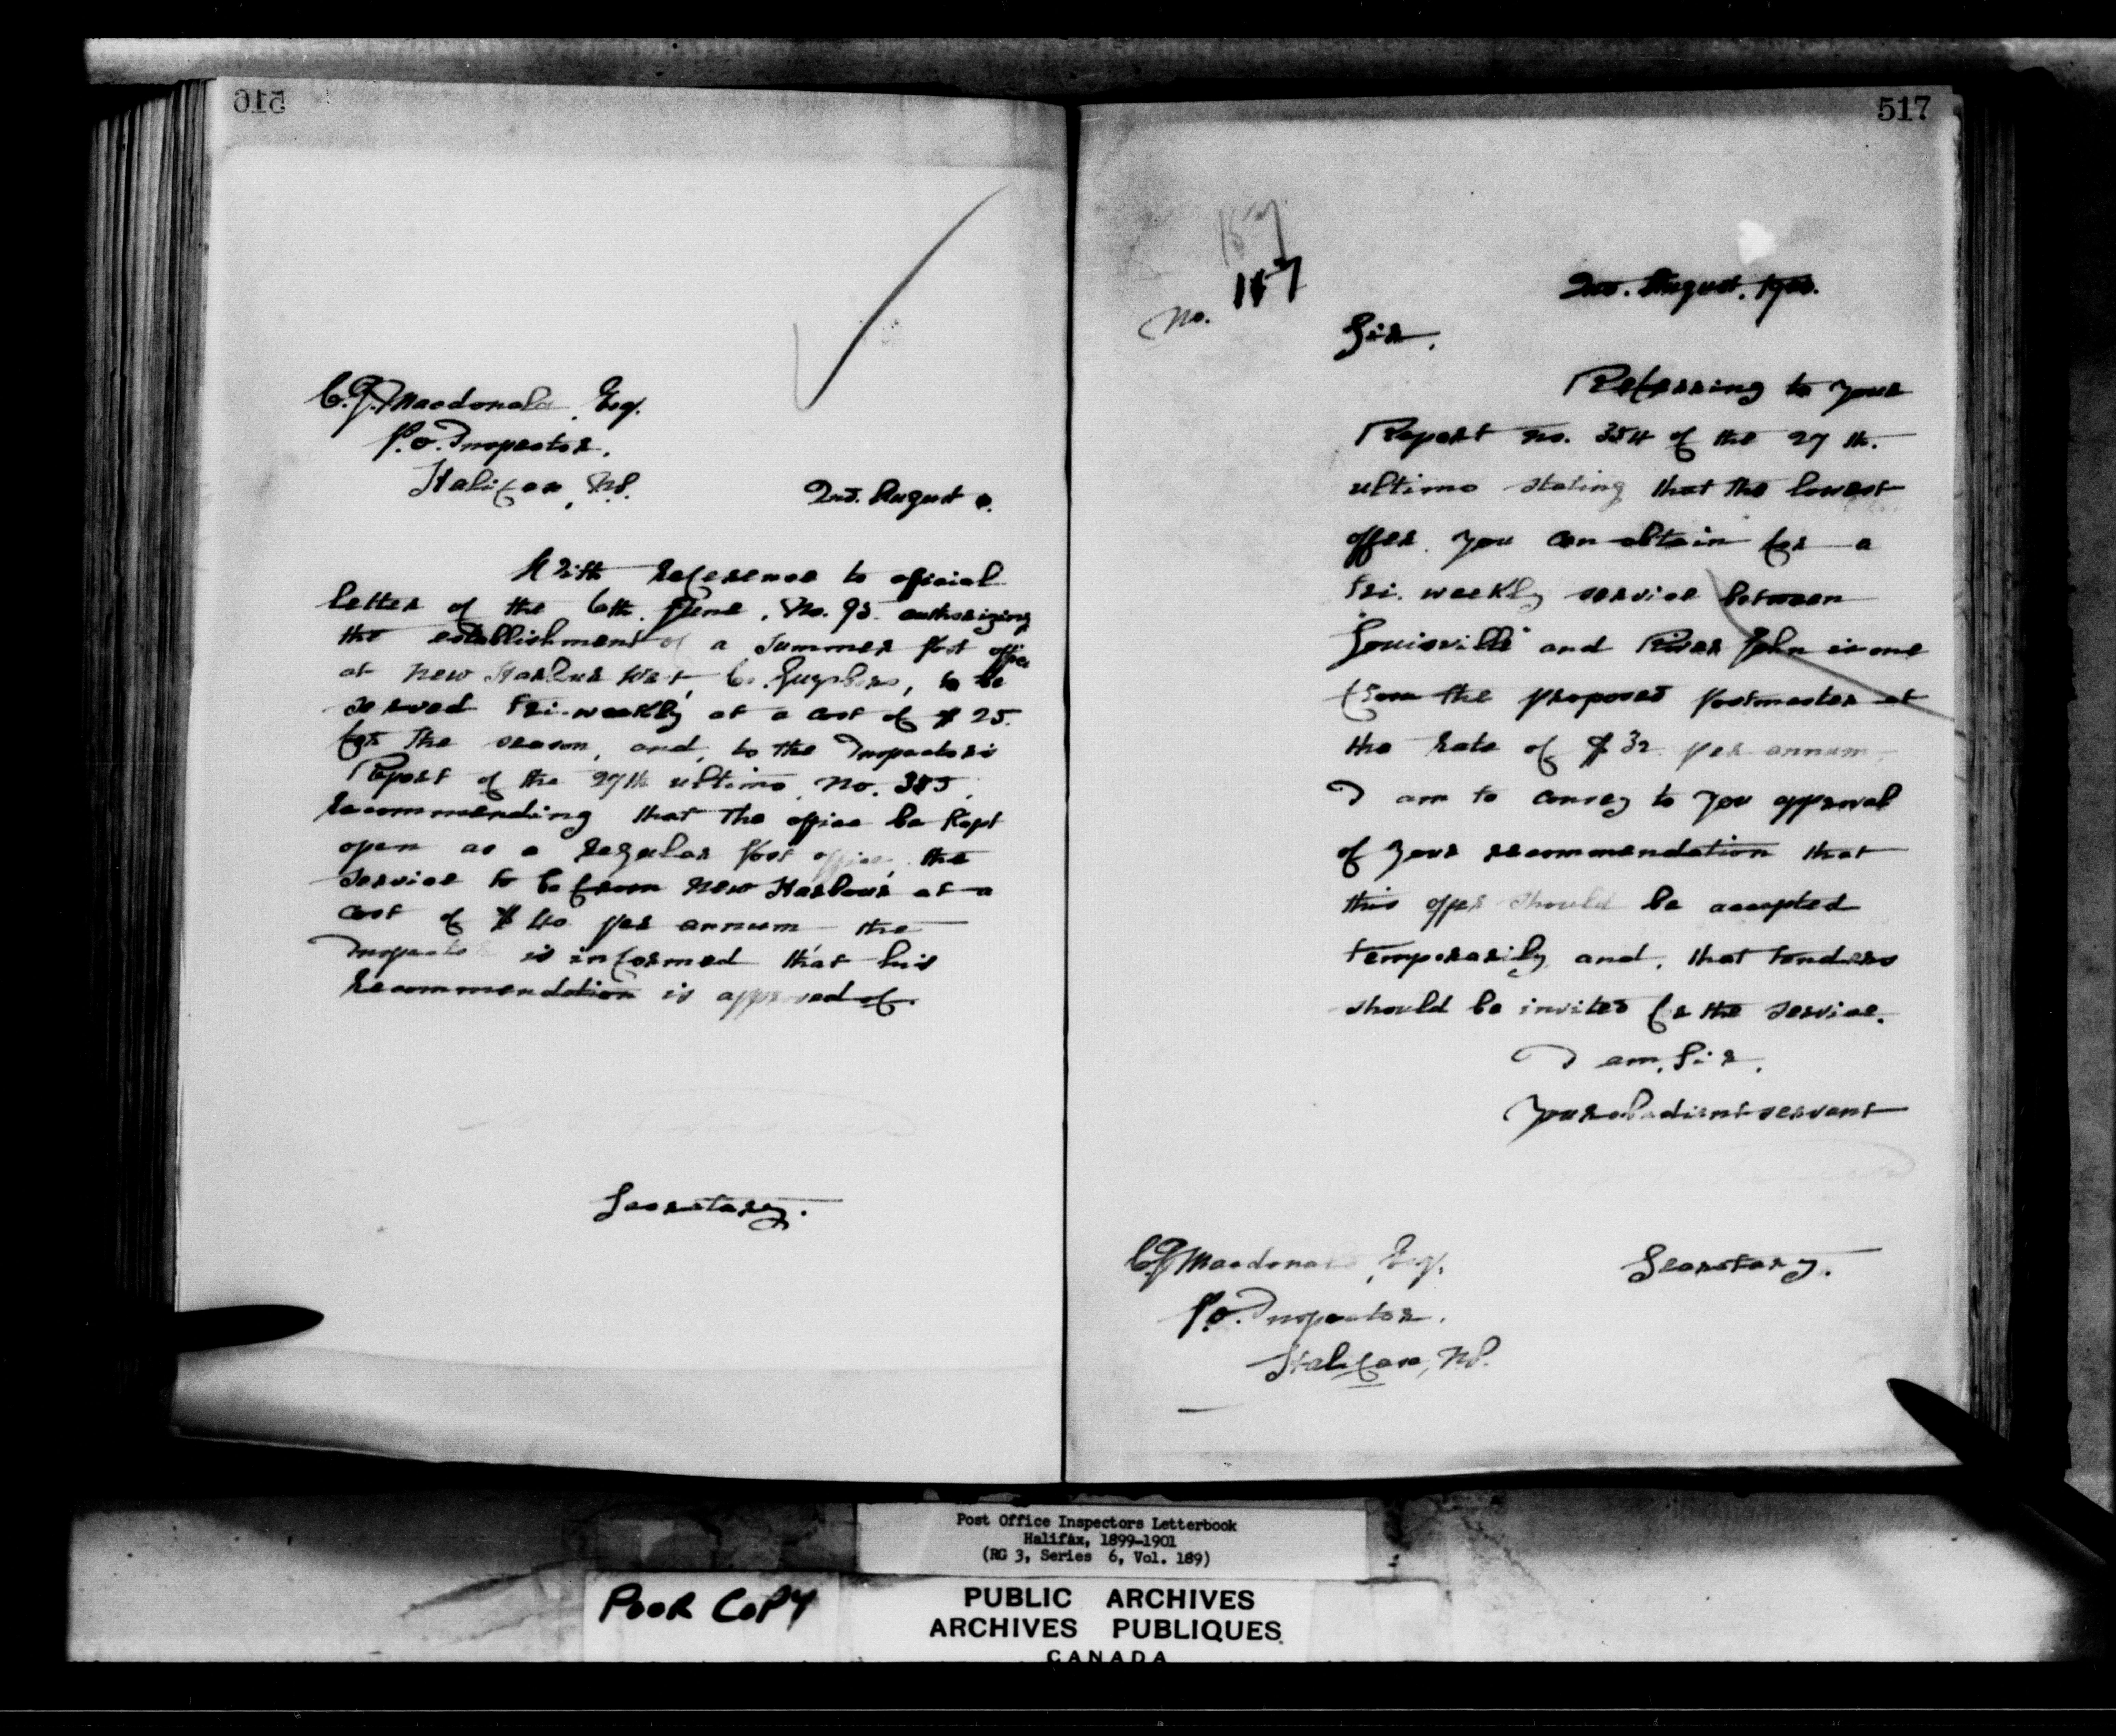 516
C.J. Macdonald, Esq.
P.O. Inspector,
Halifax, N.S.
2nd. August 0.
With reference to official
letter of the 6th. June, No. 95. authorizing
the establishment of a Summer Post Office
at New Harbour West, Co. Guysboro, to be
served tri-weekly at a cost of $25.
for the season, and, to the Inspectors
Report of the 27th ultimo, No. 355,
recommending that the office be kept
open as a regular Post office, the
service to be from New Harbour at a
cost of $40 per annum the
Inspector is informed that his
recommendation is approved of.
Secretary.
517
157
No. 157
2nd. August, 1900.
Sir,
Referring to your
Report No. 354 of the 27 th.
ultimo stating that the lowest
offer you can obtain for a
tri. weekly service between
"Louisville" and River John is one
from the proposed Postmaster at
the rate of $32 per annum,
I am to convey to you approval
of your recommendation that
this offer should be accepted
temporarily and, that tenders
should be invited for the service.
I am, Sir,
Your obedient servant
Secretary.
C.J. Macdonald, Esq.
P.O. Inspector,
Halifax, N.S.
Post Office Inspectors Letterbook
Halifax, 1899-1901
(RG 3, Series 6, Vol. 189)
POOR COPY
PUBLIC ARCHIVES
ARCHIVES PUBLIQUES
CANADA